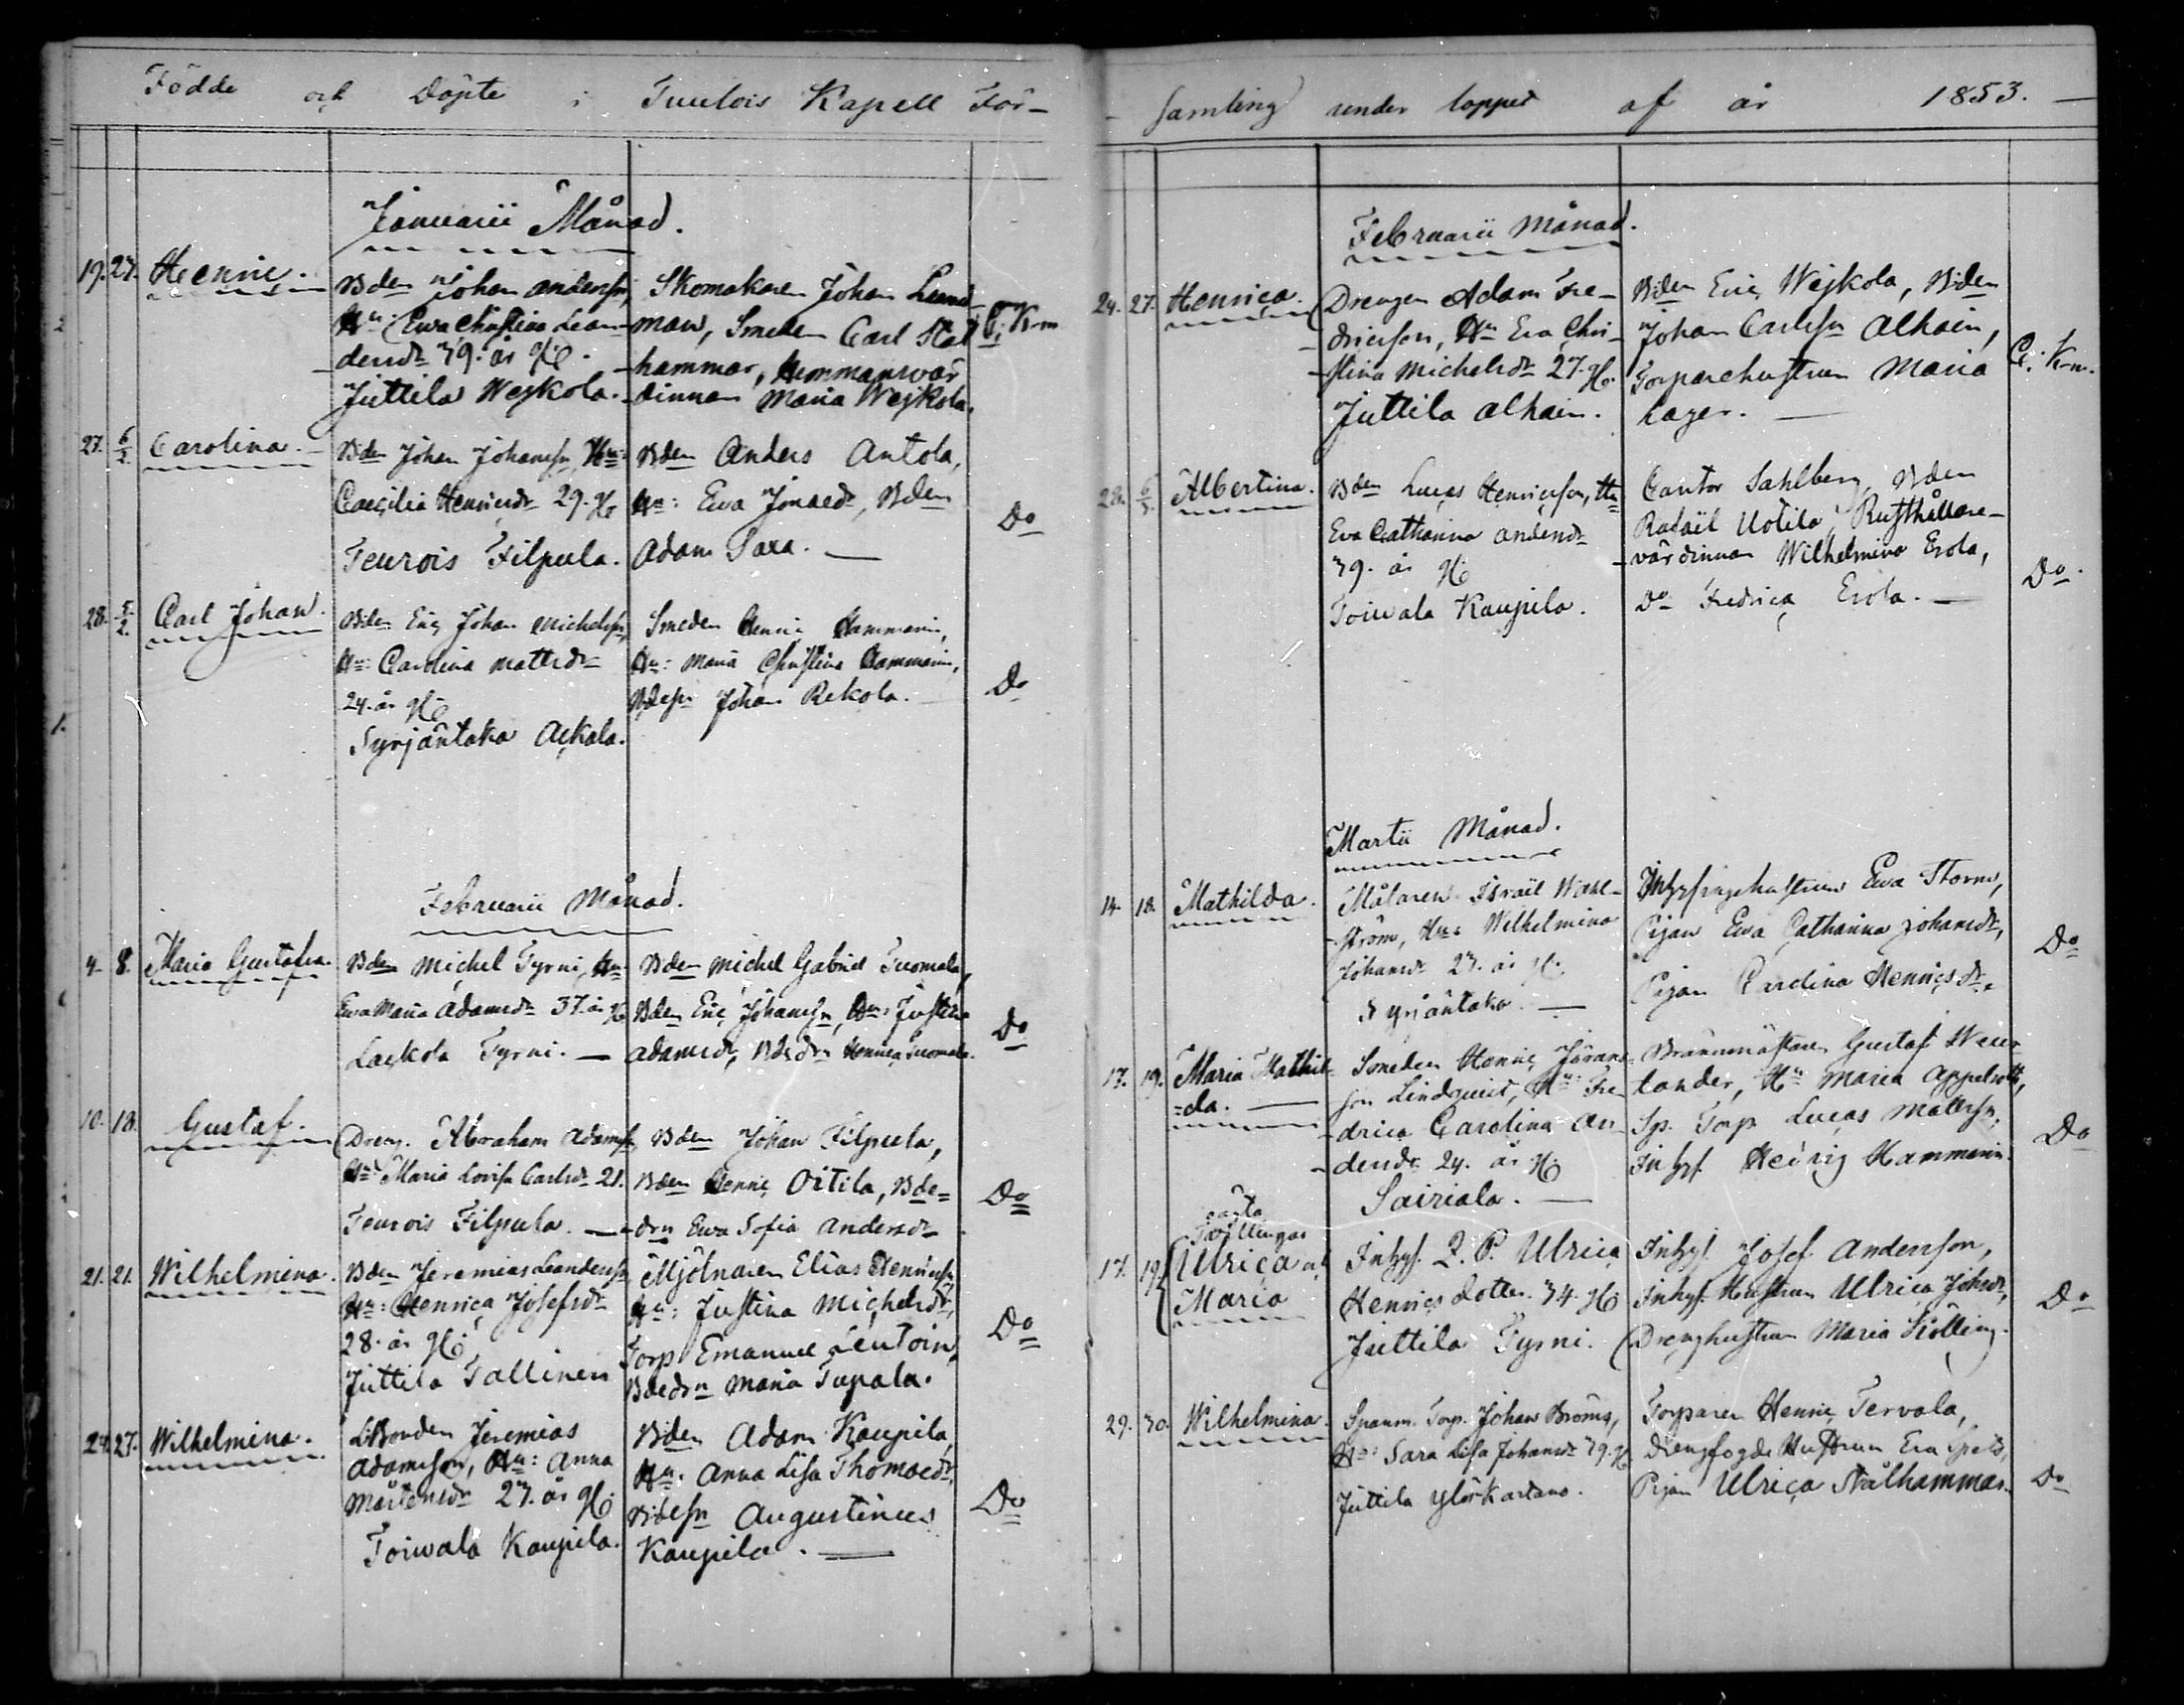 Födde och Döpte i Tuulois Kapell För-
Januarii Månad.
19. 27. Henric.
Bden Johan Andersson,
Hu: Ewa Christina Lean-
dersdr 39. år
Juttila Wejkola.
Skomakaren Johan Lind-
man, Smeden Carl Stål
hammar, Hemmanswär
dinnan Maria Wejkola.
C. Krm
27. 6/2. Carolina.
Bden Johan Johansson, Hu:
Caecilia Henricsdr 29.
Teurois Filpula.
Bden Anders Antola,
Hu: Ewa Jonaedr, Bden
Adam Saxa.
Do
28. 5/2. Carl Johan.
Bden Eric Johan Michelsson,
Hu: Carolina Mattsdr
24. år
Syrjäntaka Ackala.
Smeden Henric Hammarin,
Hu: Maria Christina Hammarin,
Bdesn Johan Rekola.
Do
Februarii Månad.
4. 8. Maria Gustafva.
Bden Michel Tyrni, Hu:
Ewa Maria Adamsdr 37. år
Laskola Tyrni.
Bden Michel Gabriel Tuomala,
Bden Eric Johansson, Hu: Justina
Adamsdr, Bdedr Henrica Tuomala.
Do
10. 13. Gustaf.
Dreng. Abraham Adamsson,
Hu: Maria Lovisa Carlsdr 21.
Teurois Filpula.
Bden Johan Filpula,
Bden Henric Oitila, Bde-
drn Ewa Sofia Andersdr
Do
21. 21. Wilhelmina.
Bden Jeremias Leandersson,
Hu: Henrica Josefsdr
28. år
Juttila Tallinen
Mjölnaren Elias Henricsson,
Hu: Justina Michelsdr,
Torp. Emanuel Leutoin,
Bdedrn Maria Tupala.
Do
24. 27. Wilhelmina.
LBonden Jeremias
Adamsson, Hu: Anna
Mårtensdr 27. år
Toivala Kaupila.
Bden Adam Kaupila,
Hu. Anna Lisa Thomaedr,
Bdesn Augustinus
Kaupila.
Do
samling under loppet af år 1853.
Februarii Månad.
24. 27. Henrica.
Drengen Adam Fre-
dricsson, Hu Eva Chri-
stina Michelsdr 27.
Juttila Alhain.
Bden Eric Wejkola, Bden
Johan Carlsson Alhain,
Torparehustrun Maria
Lager.
C. Krm.
28. 6/3. Albertina.
Bden Lucas Henricsson, Hu
Eva Catharina Andersdr
39. år
Toivala Kaupila.
Cantor Sahlberg, Bden
Rafaël Uotila, Rusthållare-
värdinnan Wilhelmina Erola,
Do Fredrica Erola.
Do
Martii Månad.
14. 18. Mathilda.
Målaren Israël Wahl-
ström, Hu: Wilhelmina
Johansdr 27. år
Syrjäntaka.
Inhysingehustrun Ewa Storm,
Pigan Ewa Catharina Johansdr,
Pigan Carolina Henricsdr.
Do
17. 19. Maria Mathil-
=da.
Smeden Henric Görans-
son Lindqvist, Hu: Fre-
drica Carolina An-
dersdr 24. år
Sairiala.
Brännmästaren Gustaf
lander, Hu Maria Appelroth,
Sp. Torp. Lucas Mattsson,
Inhys. Hedvig Hammarin.
Do
oäkta
Tvillingar
17. 19. Ulrica och
Maria
Inhys. Q. P. Ulrica
Henrics dotter. 34.
Juttila Tyrni.
Inhys. Josef Andersson,
Inhys. Hustrun Ulrica Johsdr,
Drenghustrun Maria Kölling.
Do
29. 30. Wilhelmina.
Spanm. Torp. Johan Broms,
Hu: Sara Lisa Johansdr 39.
Juttila Ylöskartano.
Torparen Henric Tervala,
Drengfogde Hustrun Eva Spets,
Pigan Ulrica Stålhammar.
Do